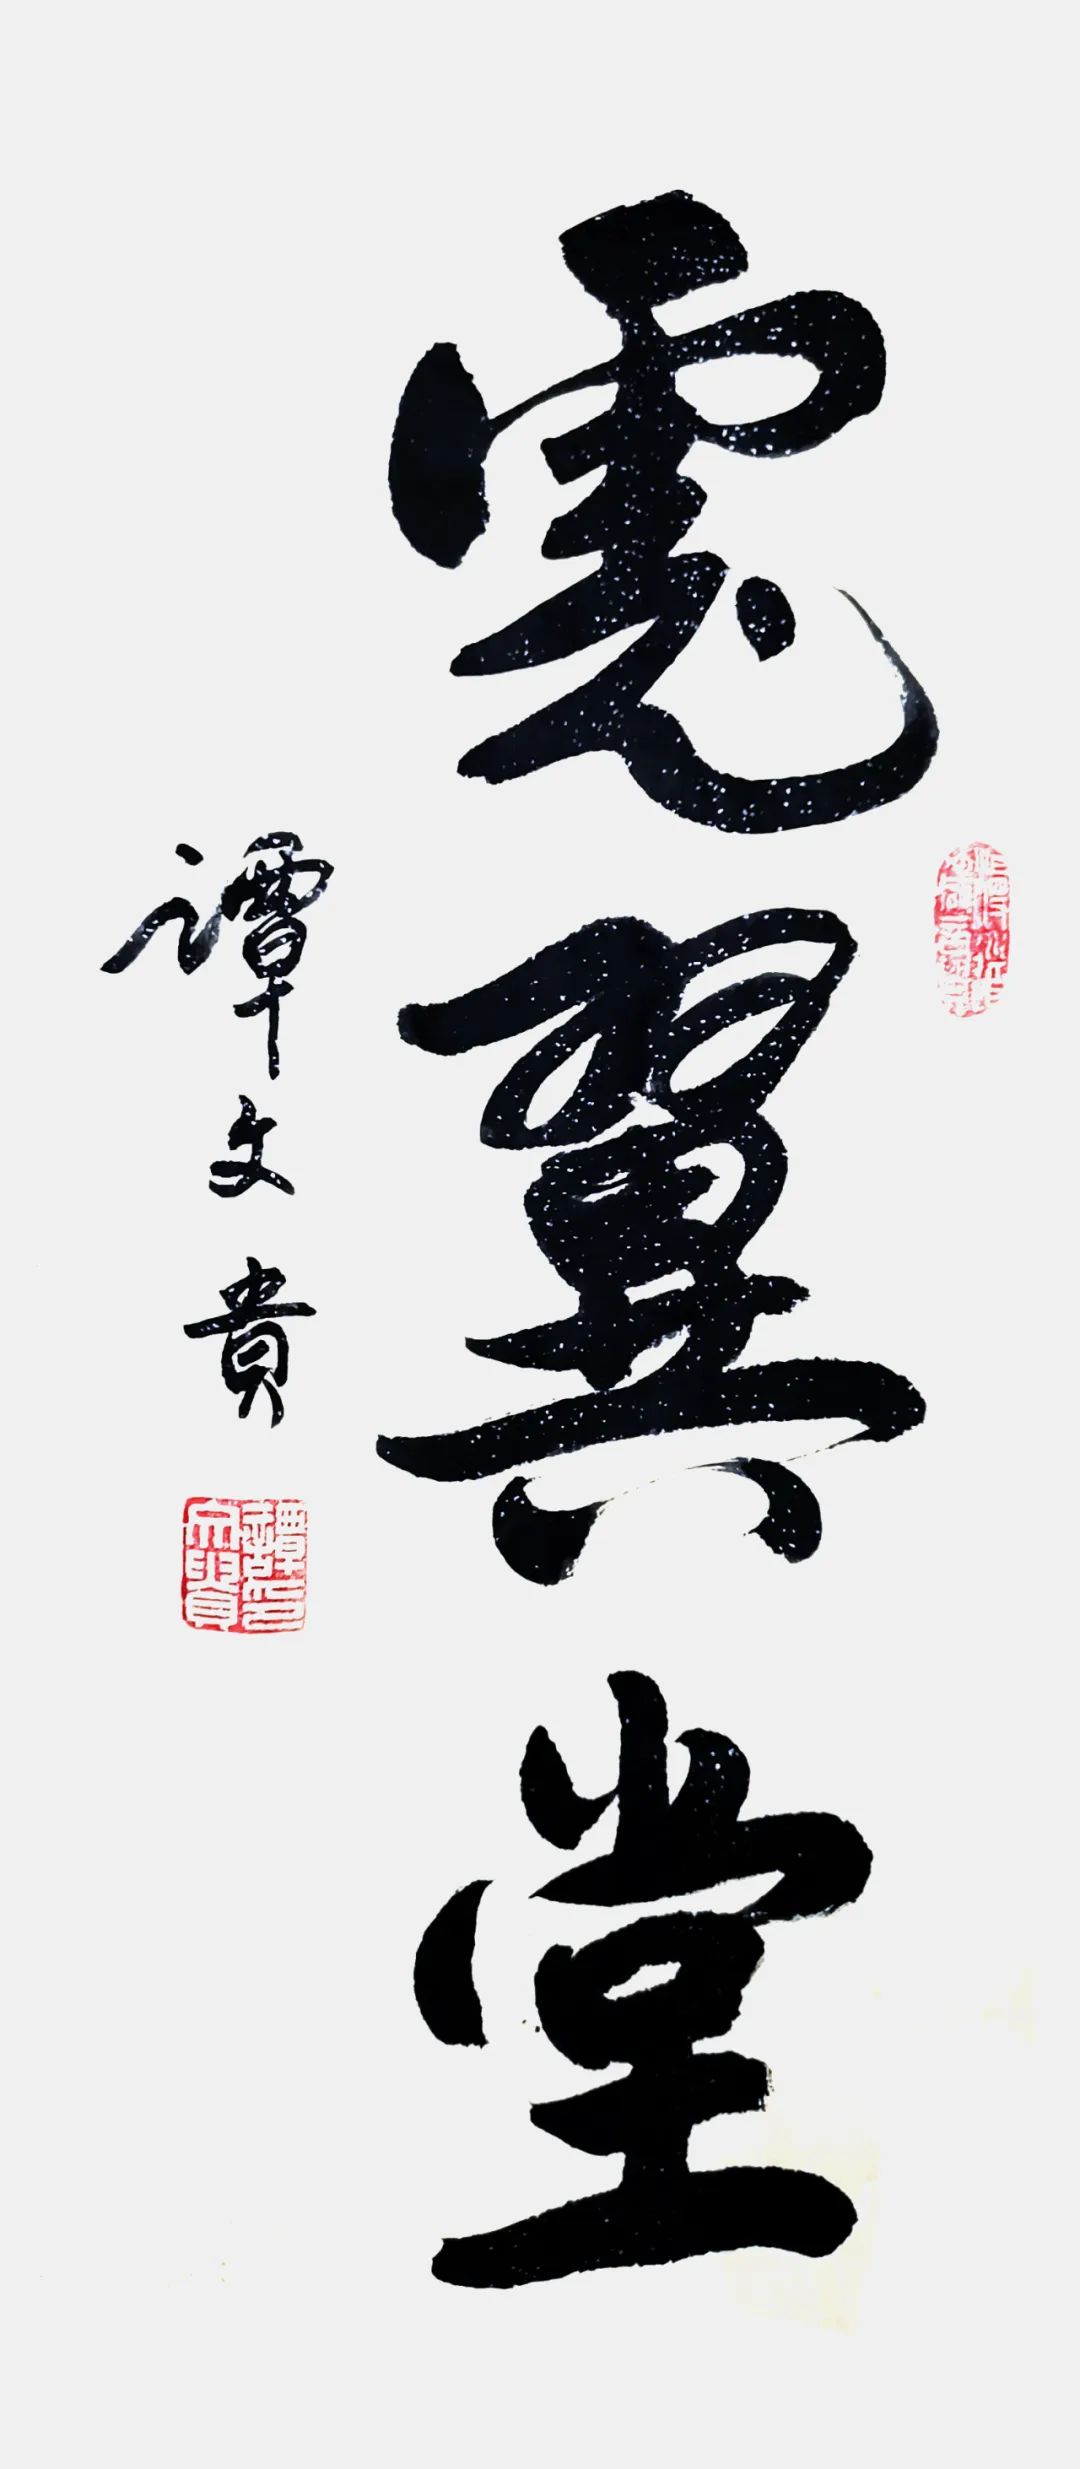 憲翼堂
譚文貴
譚印文貴